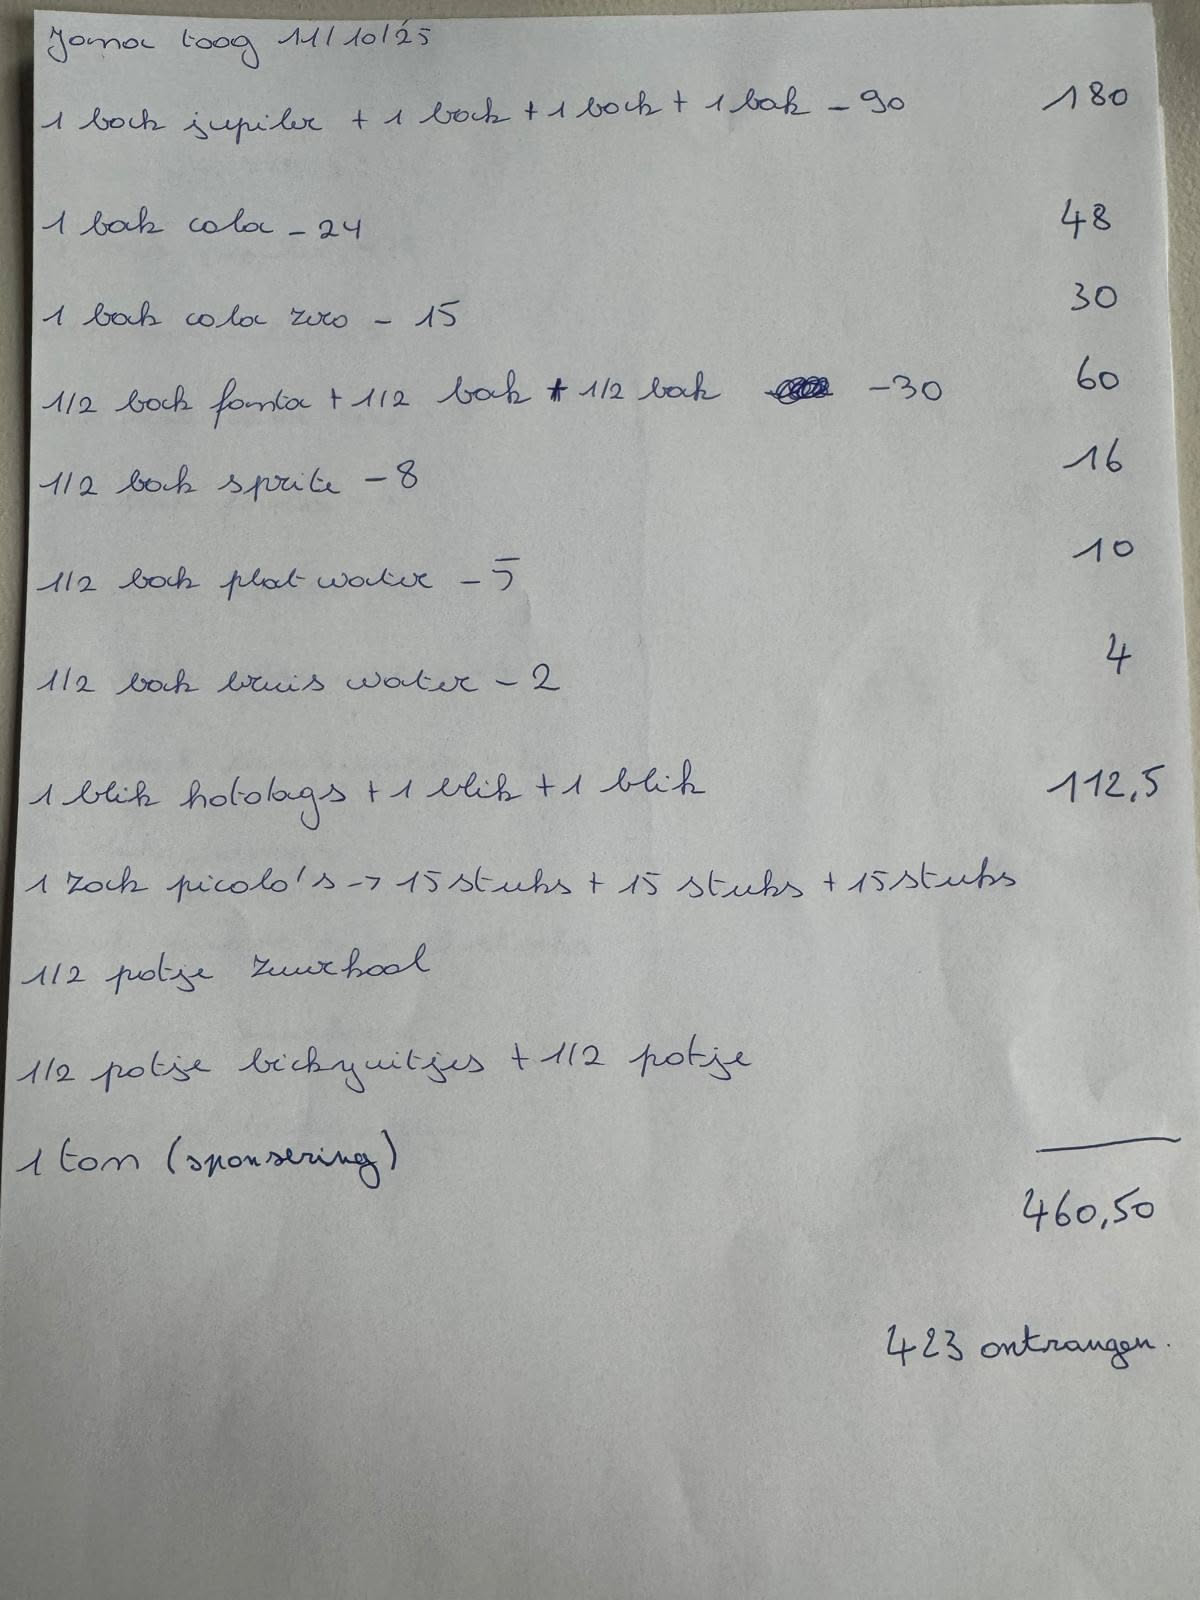 Jama toog 11/10/25
1 bak jupiler + 1 bak + 1 bak + 1 bak - 90 180
1 bak cola - 24 48
1 bak cola zero - 15 30
1/2 bak fanta + 1/2 bak + 1/2 bak - 30 60
1/2 bak sprite - 8 16
1/2 bak plat water - 5 10
1/2 bak bruis water - 2 4
1 blik hotdogs + 1 blik + 1 blik 112,5
1 zak picolo's -> 15 stuks + 15 stuks + 15 stuks
1/2 potje zuurkool
1/2 potje bickyuitjes + 1/2 potje
1 ton (sponsering)
460,50
423 ontvangen.